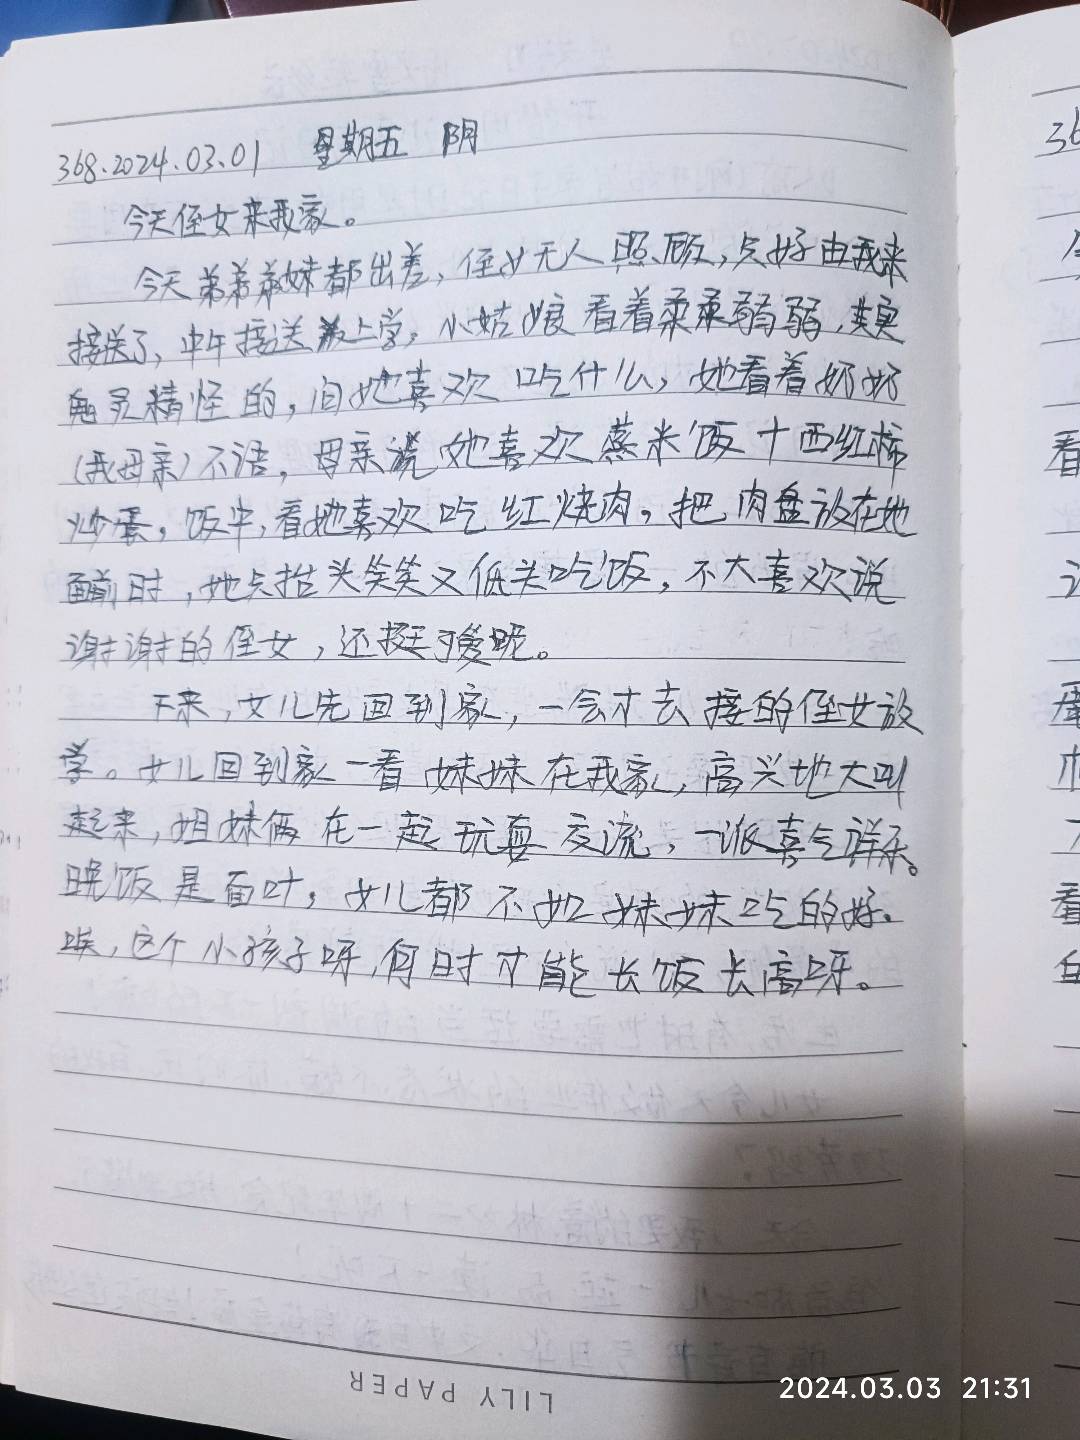 368.2024.03.01 星期五 阴
今天侄女来我家。
今天弟弟弟妹都出差，侄女无人照顾，只好由我来
接送了，中午接送上学，小姑娘看着柔柔弱弱，
鬼灵精怪的，问她喜欢吃什么，她看着奶奶
（我母亲）不语，母亲说她喜欢蒸米饭十西红柿
炒蛋。饭中，看她喜欢吃红烧肉。把肉盘放在她
面前时，她点抬头笑笑又低头吃饭，不大喜欢说
谢谢的侄女，还挺可爱呢。
下来，女儿先回到家，一会才去接的侄女放
学。女儿回到家一看妹妹在我家，高兴地大叫
起来，姐妹俩在一起玩耍交流，一派喜气详禾。
晚饭是面叶，女儿都不如妹妹吃的好。
唉，这个小孩子呀，何时才能长饭长高呀。
LILY PAPER
2024.03.03 21:31
36
看